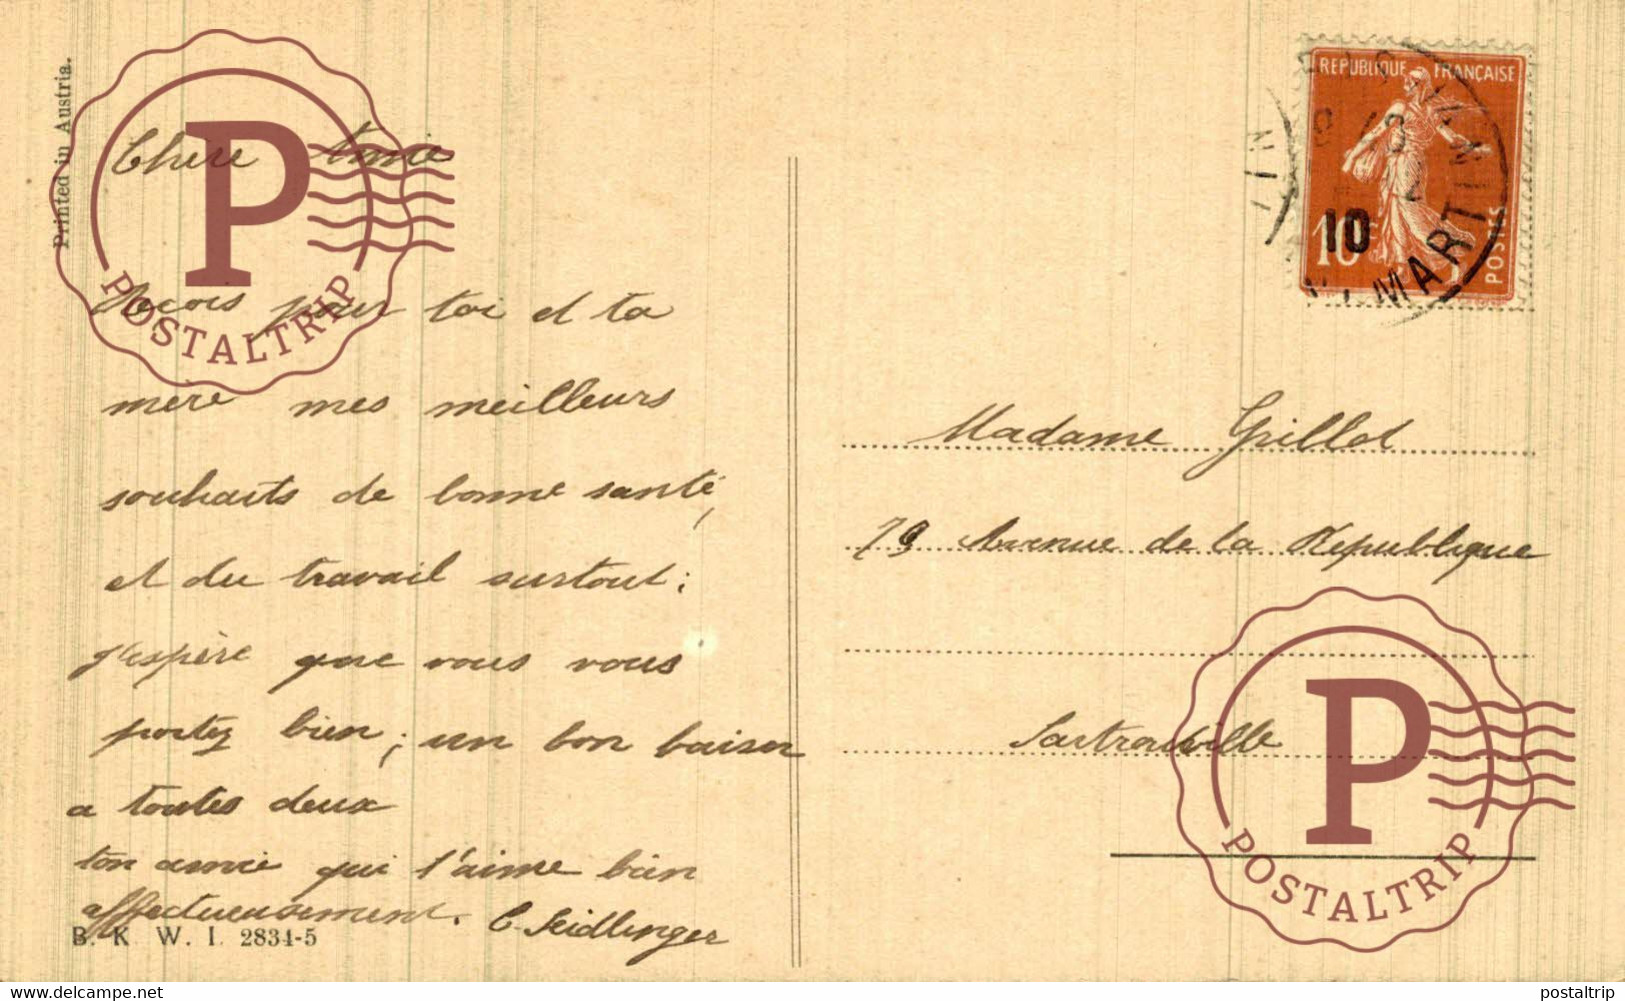 Printed in Austria.
Chère Amie
Reçois pour toi et ta
mère mes meilleurs
souhaits de bonne santé,
et du travail surtout;
j'espère que vous vous
portez bien; un bon baiser
a toutes deux
ton amie qui t'aime bien
affectueusement. C. Seidlinger
B. K. W. I. 2834-5
REPUBLIQUE FRANÇAISE
10
10c
POSTES
MARTIN
Madame Grillot
79 Avenue de la Republique
Sartrouville
P
POSTALTRIP
P
POSTALTRIP
https://www.delcampe.net
postaltrip